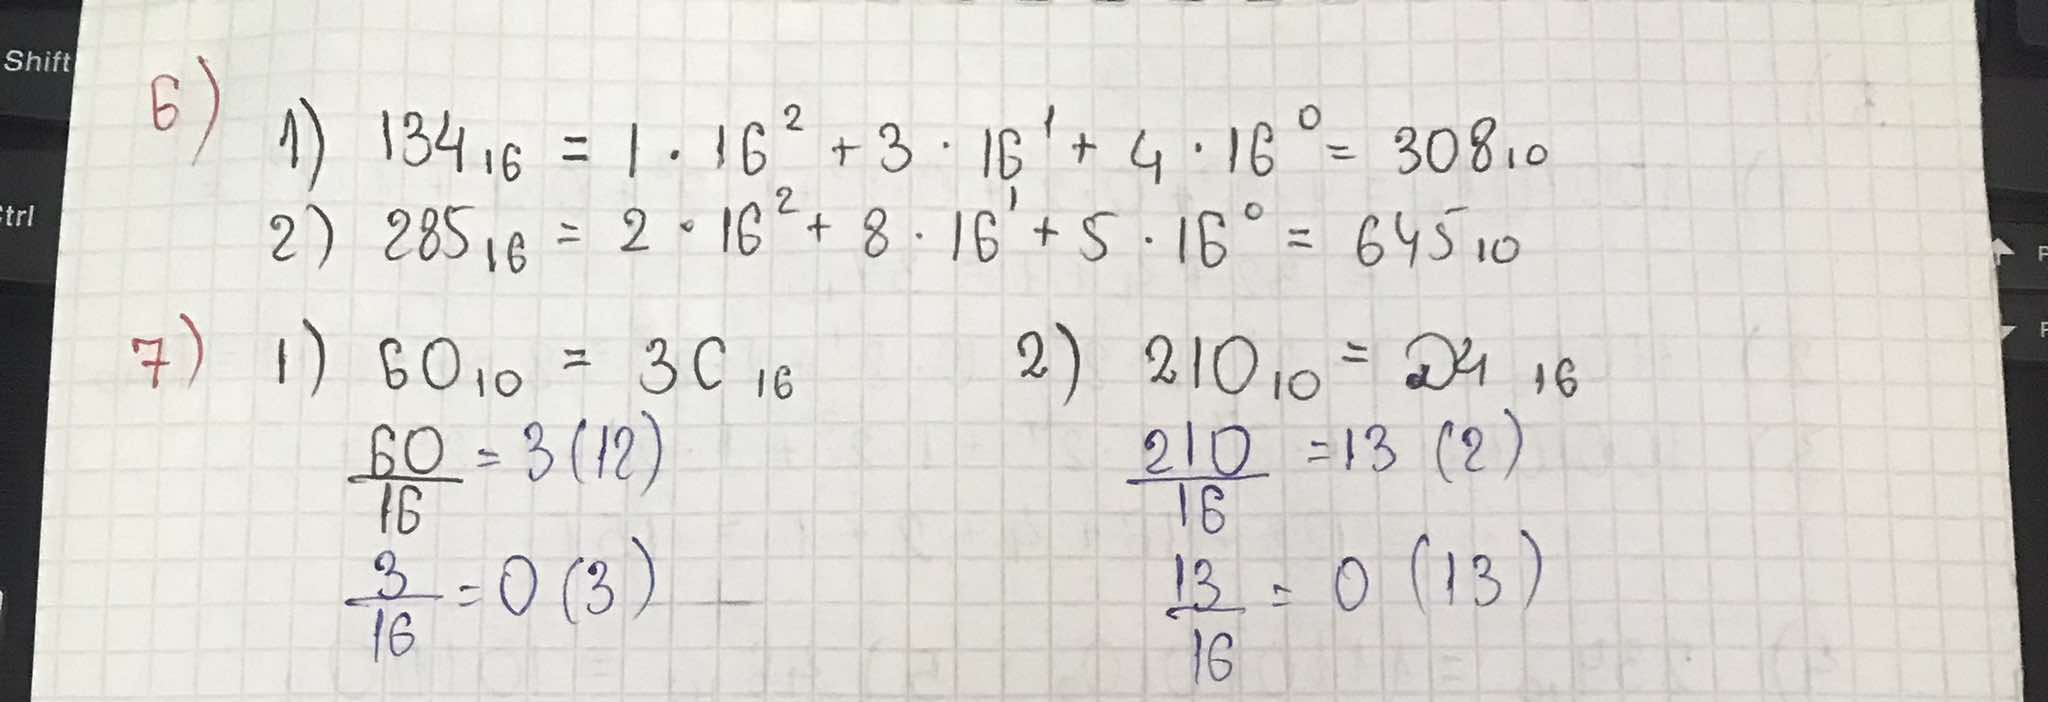 Shift
6)
1) 134₁₆ = 1 · 16² + 3 · 16¹ + 4 · 16⁰ = 308₁₀
trl
2) 285₁₆ = 2 · 16² + 8 · 16¹ + 5 · 16⁰ = 645₁₀
7) 1) 60₁₀ = 3C ₁₆
60/16 = 3 (12)
3/16 = 0 (3)
2) 210₁₀ = D4 ₁₆
210/16 = 13 (2)
13/16 = 0 (13)